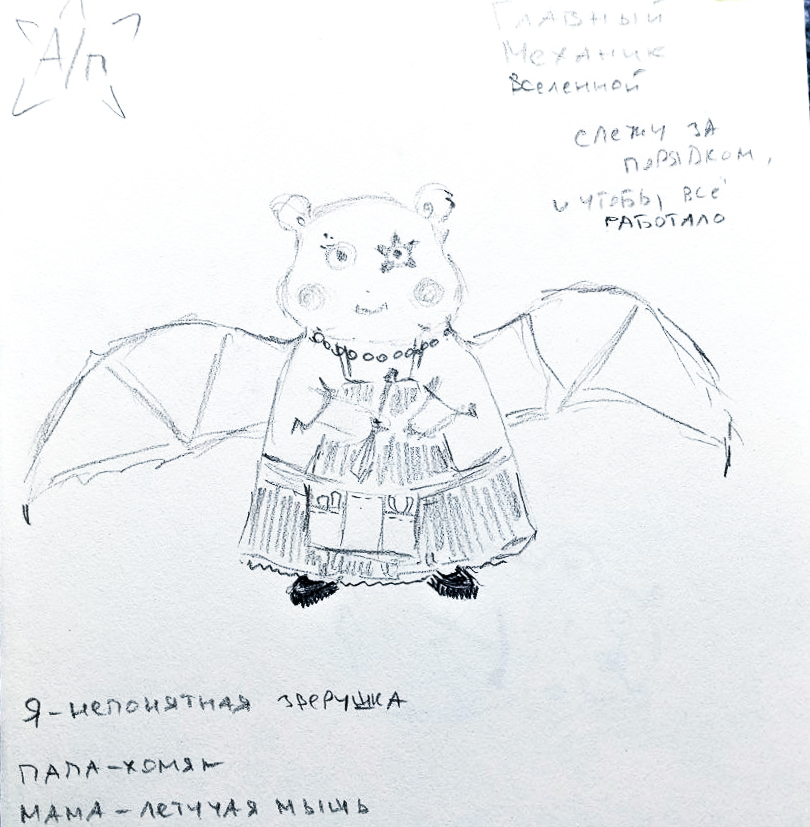 А/п
Главный
Механик
Вселенной
слежу за
порядком,
и чтобы всё
работало
Я - непонятная зверушка
папа - хомяк
мама - летучая мышь